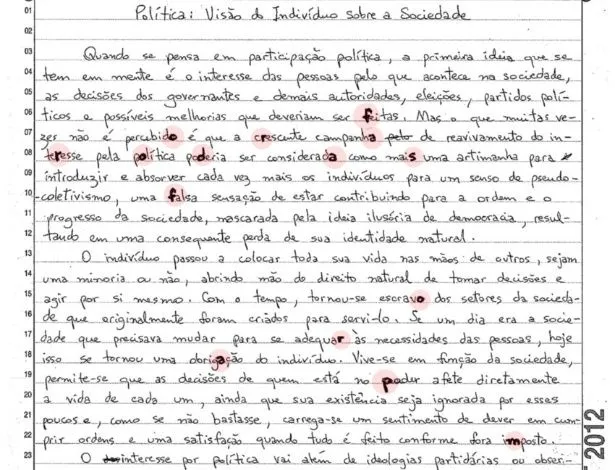 01 Política: Visão do Indivíduo sobre a Sociedade
02
03 Quando se pensa em participação política, a primeira ideia que se
04 tem em mente é o interesse das pessoas pelo que acontece na sociedade,
05 as decisões dos governantes e demais autoridades, eleições, partidos polí-
06 ticos e possíveis melhorias que deveriam ser feitas. Mas o que muitas ve-
07 zes não é percebido é que a crescente campanha pelo de reavivamento do in-
08 teresse pela política poderia ser considerada como mais uma artimanha para
09 introduzir e absorver cada vez mais os indivíduos para um senso de pseudo-
10 -coletivismo, uma falsa sensação de estar contribuindo para a ordem e o
11 progresso da sociedade, mascarada pela ideia ilusória de democracia, resul-
12 tando em uma consequente perda de sua identidade natural.
13 O indivíduo passou a colocar toda sua vida nas mãos de outros, sejam
14 uma minoria ou não, abrindo mão do direito natural de tomar decisões e
15 agir por si mesmo. Com o tempo, tornou-se escravo dos setores da socieda-
16 de que originalmente foram criados para servi-lo. Se um dia era a socie-
17 dade que precisava mudar para se adequar às necessidades das pessoas, hoje
18 isso se tornou uma obrigação do indivíduo. Vive-se em função da sociedade,
19 permite-se que as decisões de quem está no poder afete diretamente
20 a vida de cada um, ainda que sua existência seja ignorada por esses
21 poucos e, como se não bastasse, carrega-se um sentimento de dever em cum-
22 prir ordens e uma satisfação quando tudo é feito conforme fora imposto.
23 O interesse por política vai além de ideologias partidárias, o obser-
2012